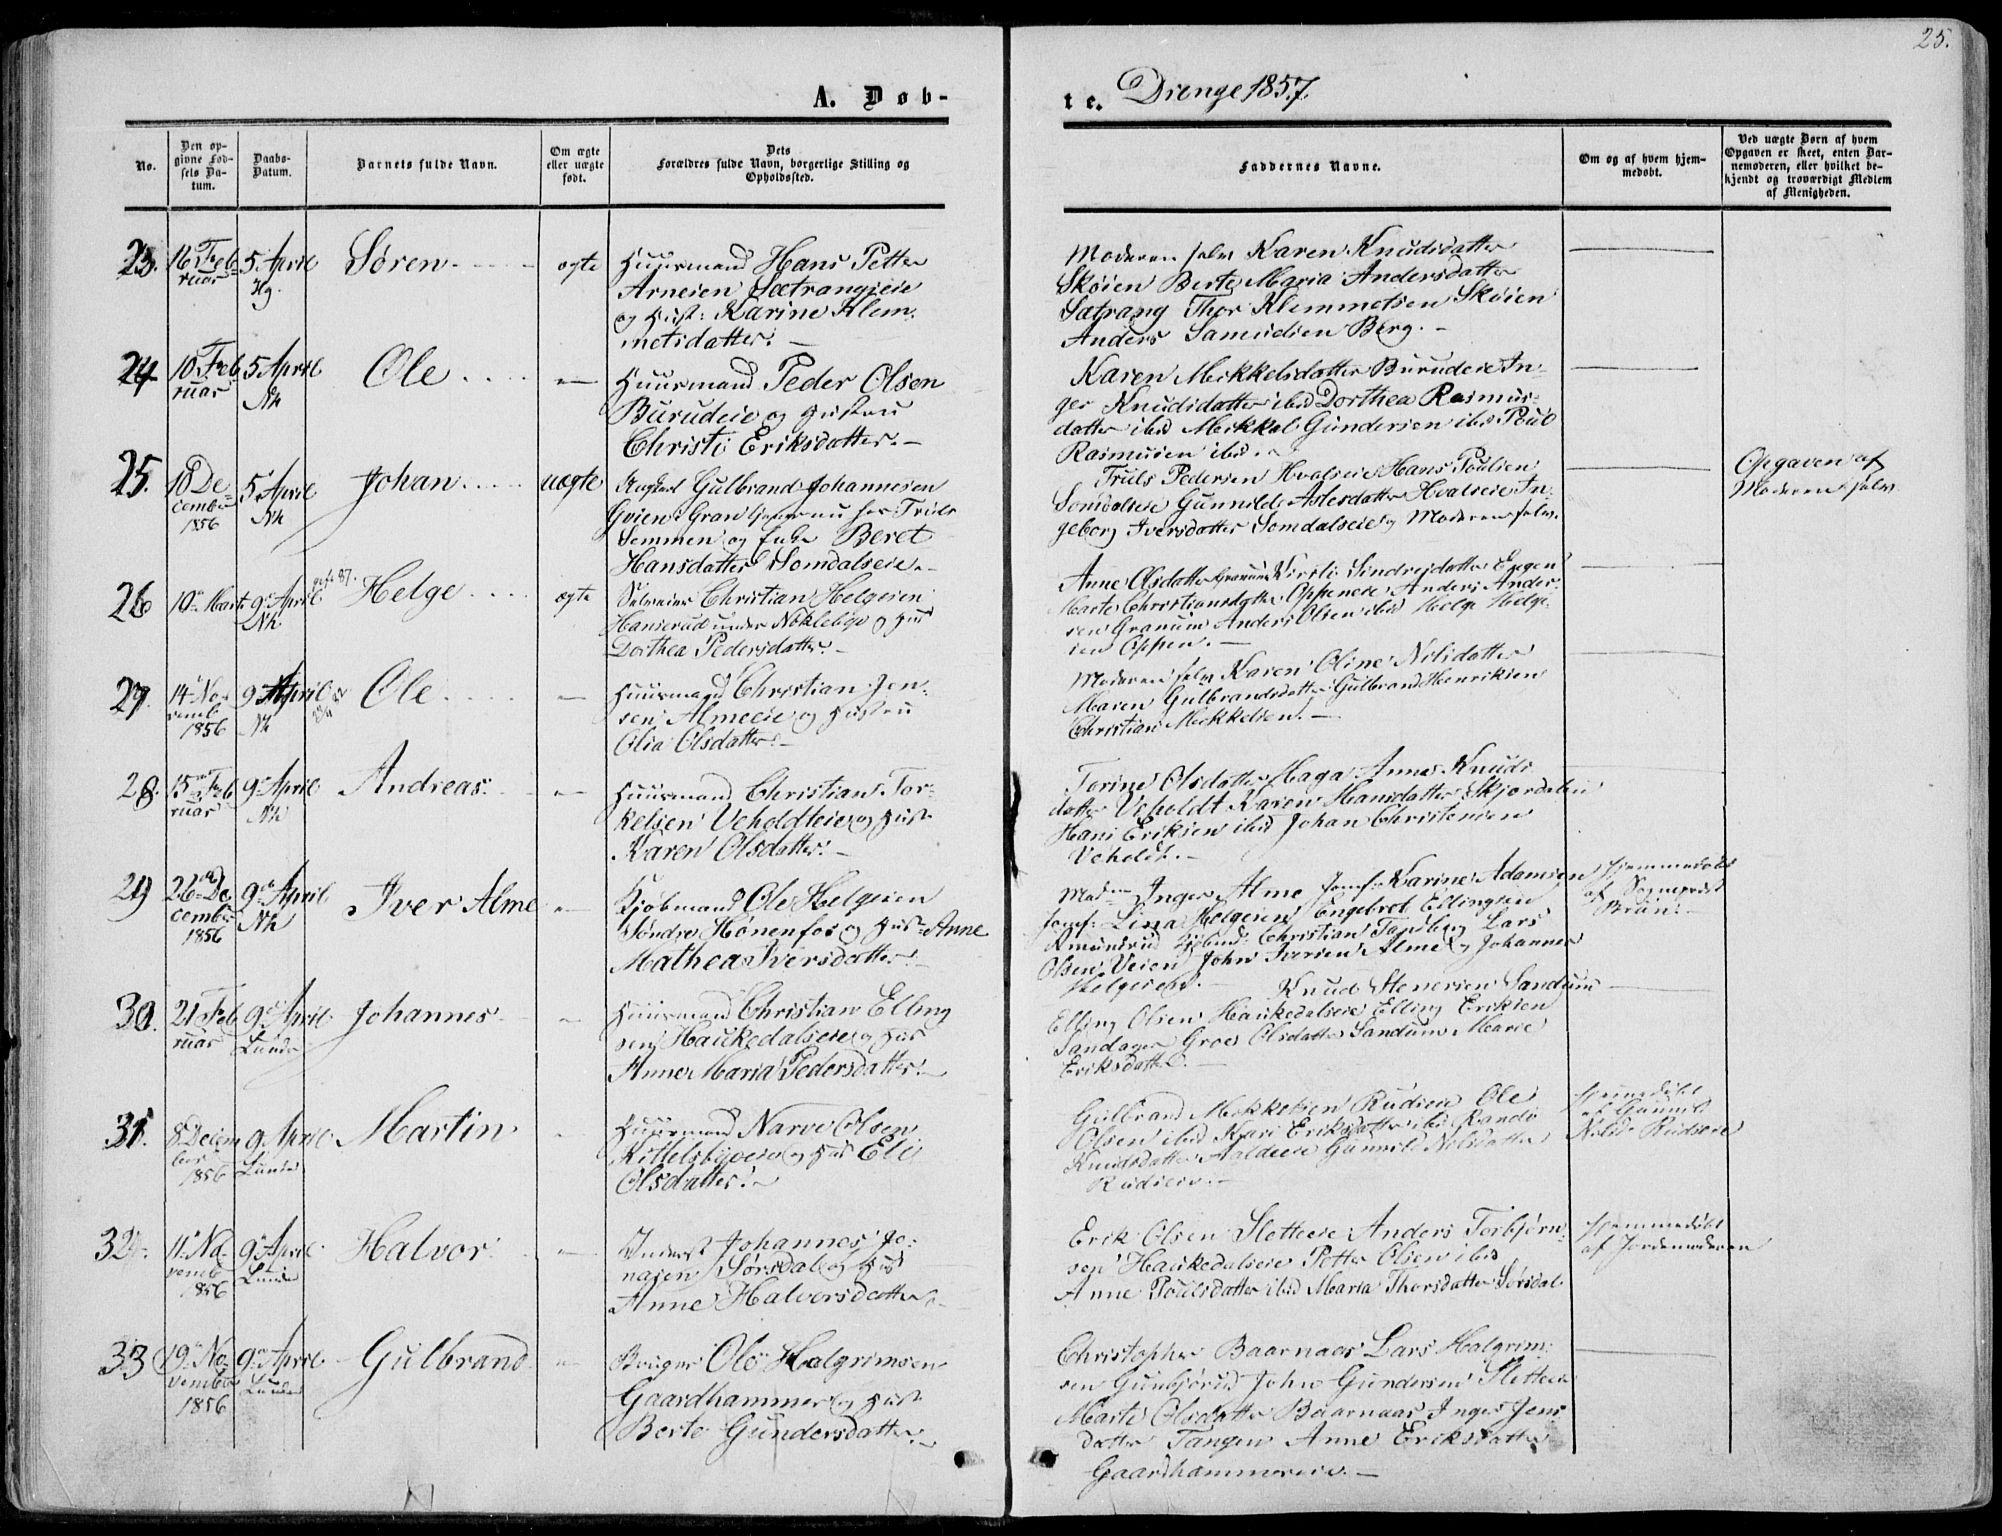 25.
A. Døb-
te. Drenge 1857.
No.
Den op-
givne Fød-
sels Da-
tum.
Daabs-
Datum.
Barnets fulde Navn.
Om ægte
eller uægte
født.
Dets
Forældres fulde Navn, borgerlige Stilling og
Opholdssted.
Faddernes Navne.
Om og af hvem hjem-
medøbt.
Ved uægte Børn af hvem
Opgaven er skeet, enten Bar-
nemoderen, eller hvilket be-
kjendt og troværdigt Medlem
af Menigheden.
23. 16 Feb-
ruar
5 April
Hg.
Søren
ægte
Huusmand Hans Petter
Arnesen Sætrangseie
og Hust: Karine Klem-
metsdatter.
Moderen selv Karen Knudsdatter
Skøien Berte Maria Andersdatter
Sætrang Thor Klemmetsen Skøien
Anders Samuelsen Berg.
24 10 Feb
ruar
5 April
Nh
Ole
Huusmand Peder Olsen
Burudeie og Hustru
Christi Eriksdatter.
Karen Mikkelsdatter Burudeie In-
ger Knudsdatter ibid Dorthea Rasmus-
datter ibid Mikkel Gundersen ibid Poul
Rasmusen ibid.
25. 18 De-
cember
1856
5 April
Nh
Johan
uægte
Ungkarl Gulbrand Johannesen
Gvien i Gran tjenende nu hos Truls
Semmen og Enke Beret
Hansdatter Somdalseie.
Truls Pedersen Hvalseie Hans Poulsen
Somdalseie Gunnild Aslesdatter Hvalseie In-
geborg Iversdatter Somdalseie og Moderen selv.
Opgaven af
Moderen selv
26 10 Marts
9 April
Nh
Helge
ægte
Selveier Christian Helgesen
Hanserud under Nøkleby og Hust
Dorthea Pedersdatter.
Anne Olsdatter Granum Kirsti Sindresdatter Engen
Marte Christiansdatter Oppeneie Anders Ander-
sen Granum Anders Olsen ibid Helge Helge-
sen Oppen.
27. 14 No-
vemb
1856
9 April
Nh
Ole
Huusmand Christian Jen-
sen Almeeie og Hustru
Olia Olsdatter.
Moderen selv Karen Oline Nilsdatter
Maren Gulbrandsdatter Gulbrand Henriksen
Christian Mikkelsen.
28. 15 Feb
ruar
9 April
Nh
Andreas
Huusmand Christian Tor-
kelsen Veholdteie og Hust
Karen Olsdatter.
Torine Olsdatter Haga Anne Knuds
datter Veholdt Karen Hansdatter Skjerdalen
Hans Eriksen ibid Johan Christensen
Veholdt.
29 26 De
cember
1856
9 April
Nh
Iver Alme
Kjøbmand Ole Helgesen
Søndre Hønenfos og Hust Anne
Mathea Iversdatter.
Mad Inger Alme Jomf: Karine Adamsen
Jomf: Lina Helgesen Engebret Ellingsen
Amundrud Christian Tandberg Lars
Olsen Veien John Iversen Alme og Johannes
Helgesen.
Hjemmedøbt
af Sogneprest
Bruun.
30. 21 Feb
ruar
9 April
Lunde
Johannes
Huusmand Christian Elling
sen Haukedalseie og Hust
Anne Maria Pedersdatter.
Knud Stenersen Sandum
Elling Olsen Haukedalseie Elling Eriksen
Sandager Groe Olsdatter Sandum Marie
Eriksdatter.
31. 8 Decem
ber
1856
9 April
Lunde
Martin
Huusmand Narve Olsen
Kittelsbyeie og Hust Eli
Olsdatter.
Gulbrand Mikkelsen Rudsen Ole
Olsen ibid Kari Eriksdatter ibid Randi
Knudsdatter Gunnild Nilsdatter
Rudseie.
Hjemmedøbt
af Gunnild
Nilsd Rudseie
32. 11 No-
vemb
1856
9 April
Lunde
Halvor
Inderst Johannes Jo-
nasen Sørsdal og Hust
Anne Halvorsdatter
Erik Olsen Sletteeie Anders Torbjørn-
sen Haukedalseie Petter Olsen ibid
Anne Poulsdatter ibid Maria Thorsdatter Sørsdal
Hjemmedøbt
af Jordemoderen
33 19 No-
vember
1856
9 April
Lunde
Gulbrand
Bruger Ole Halgrimsen
Gaardhammer og Hust
Berte Gundersdatter.
Christopher Baarnaas Lars Halgrim-
sen Gunbjørud John Gundersen Slettee
Marte Olsdatter Baarnaas Inger Jens
datter Tangen Anne Eriksdatter
Gaardhammereie.